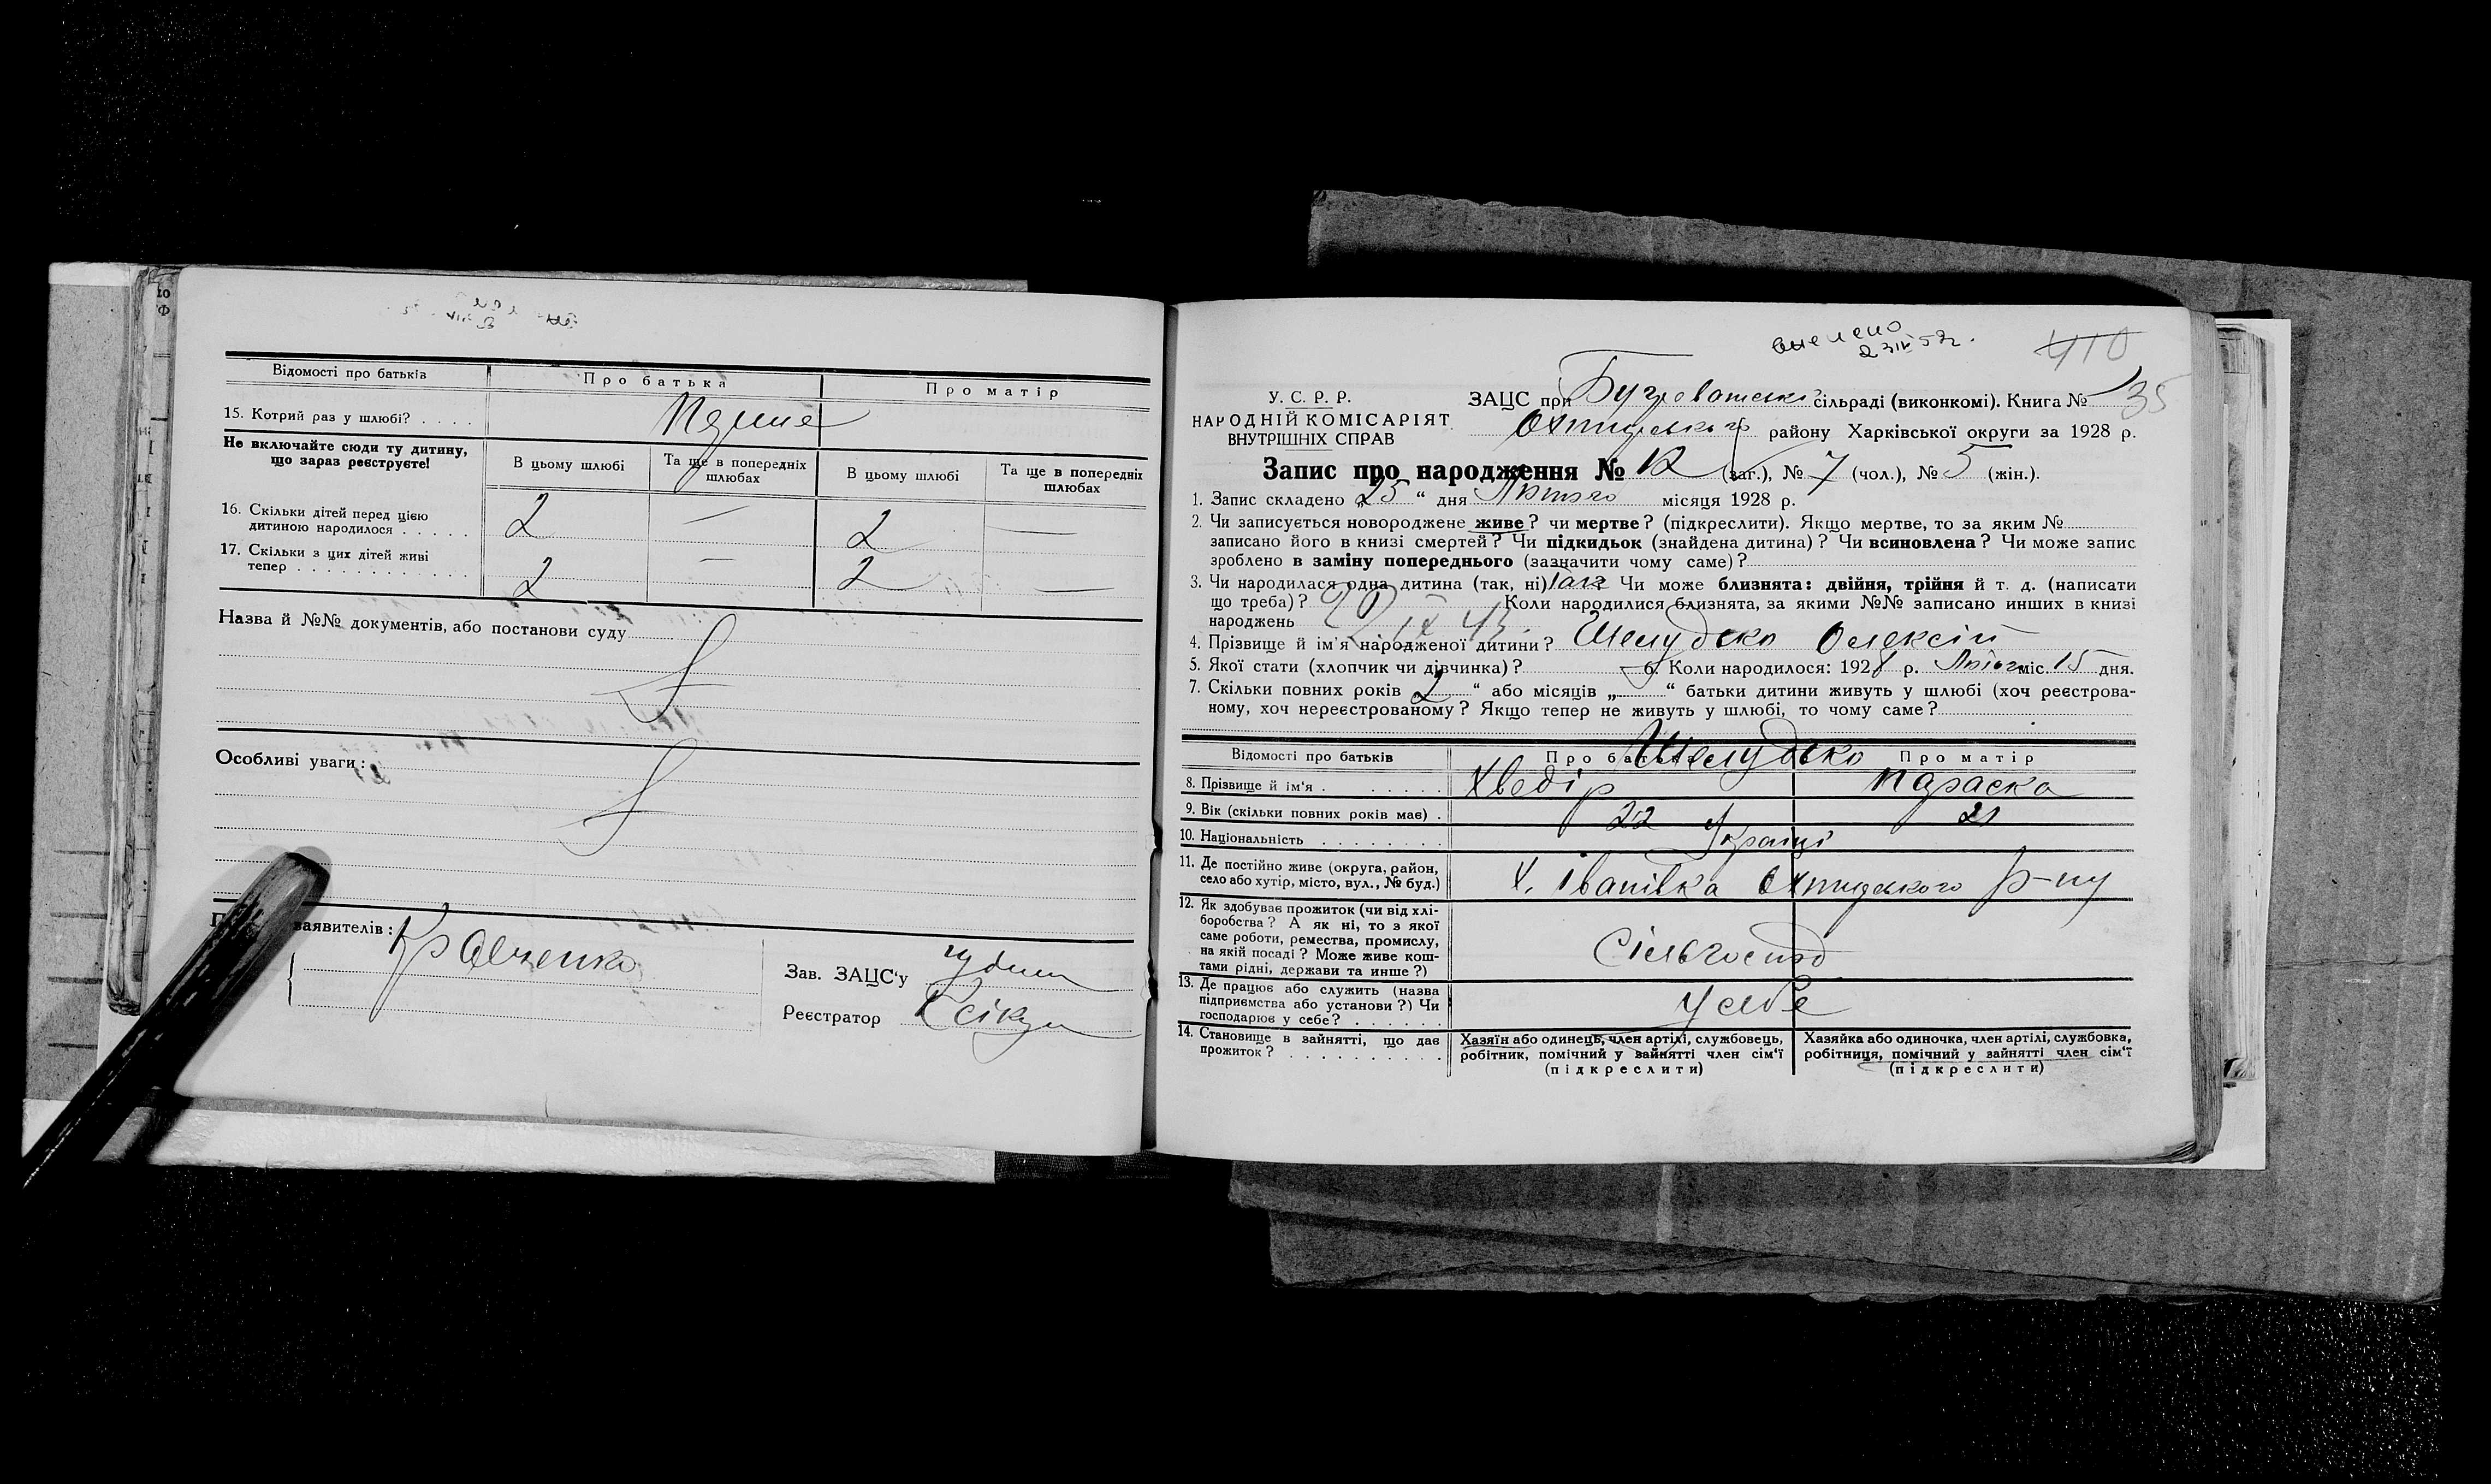 Відомості про батьків
Про батька
Про матір
15. Котрий раз у шлюбі? . . . .
Не включайте сюди ту дитину,
що зараз реєструєте!
В цьому шлюбі
Та ще в попередніх
шлюбах
В цьому шлюбі
Та ще в попередніх
шлюбах
16. Скільки дітей перед цією
дитиною народилося . . . . .
2 — 2 —
17. Скільки з цих дітей живі
тепер . . . . . . . . . . . .
2 — 2 —
Назва й №№ документів, або постанови суду
Особливі уваги:
заявителів: Кравченко
Зав. ЗАЦС'у
Реєстратор
410
35
У. С. Р. Р.
НАРОДНІЙ КОМІСАРІЯТ
ВНУТРІШНІХ СПРАВ
ЗАЦС при сільраді (виконкомі). Книга №
Охтирського району Харківської округи за 1928 р.
Запис про народження № 12 (заг.), № 7 (чол.), № 5 (жін.).
1. Запис складено „25“ дня Лютого місяця 1928 р.
2. Чи записується новороджене живе? чи мертве? (підкреслити). Якщо мертве, то за яким №
записано його в книзі смертей? Чи підкидьок (знайдена дитина)? Чи всиновлена? Чи може запис
зроблено в заміну попереднього (зазначити чому саме)?
3. Чи народилася одна дитина (так, ні) Так Чи може близнята: двійня, трійня й т. д. (написати
що треба)? Коли народилися близнята, за якими №№ записано инших в книзі
народжень
4. Прізвище й ім'я народженої дитини? Шелудько Олексій
5. Якої статі (хлопчик чи дівчинка)? 6. Коли народилося: 1928 р. Лютого міс. 15 дня.
7. Скільки повних років „2“ або місяців „ “ батьки дитини живуть у шлюбі (хоч реєстрова-
ному, хоч нереєстрованому? Якщо тепер не живуть у шлюбі, то чому саме?
Відомості про батьків
Про батька
Про матір
Шелудько
8. Прізвище й ім'я . . . . . .
Хведір Параска
9. Вік (скільки повних років має) .
22 21
10. Національність . . . . . . . .
Україці
11. Де постійно живе (округа, район,
село або хутір, місто, вул., № буд.)
Х. Іванівка Охтирського р-ну
12. Як здобуває прожиток (чи від хлі-
боробства? А як ні, то з якої
саме роботи, ремества, промислу,
на якій посаді? Може живе кош-
тами рідні, держави та инше?)
Сільгоспод
13. Де працює або служить (назва
підприємства або установи?) Чи
господарює у себе? . . . . . .
У себе
14. Становище в зайнятті, що дає
прожиток? . . . . . . . . . .
Хазяїн або одинець, член артілі, службовець,
робітник, помічний у зайнятті член сім'ї
(підкреслити)
Хазяйка або одиночка, член артілі, службовка,
робітниця, помічний у зайнятті член сім'ї
(підкреслити)